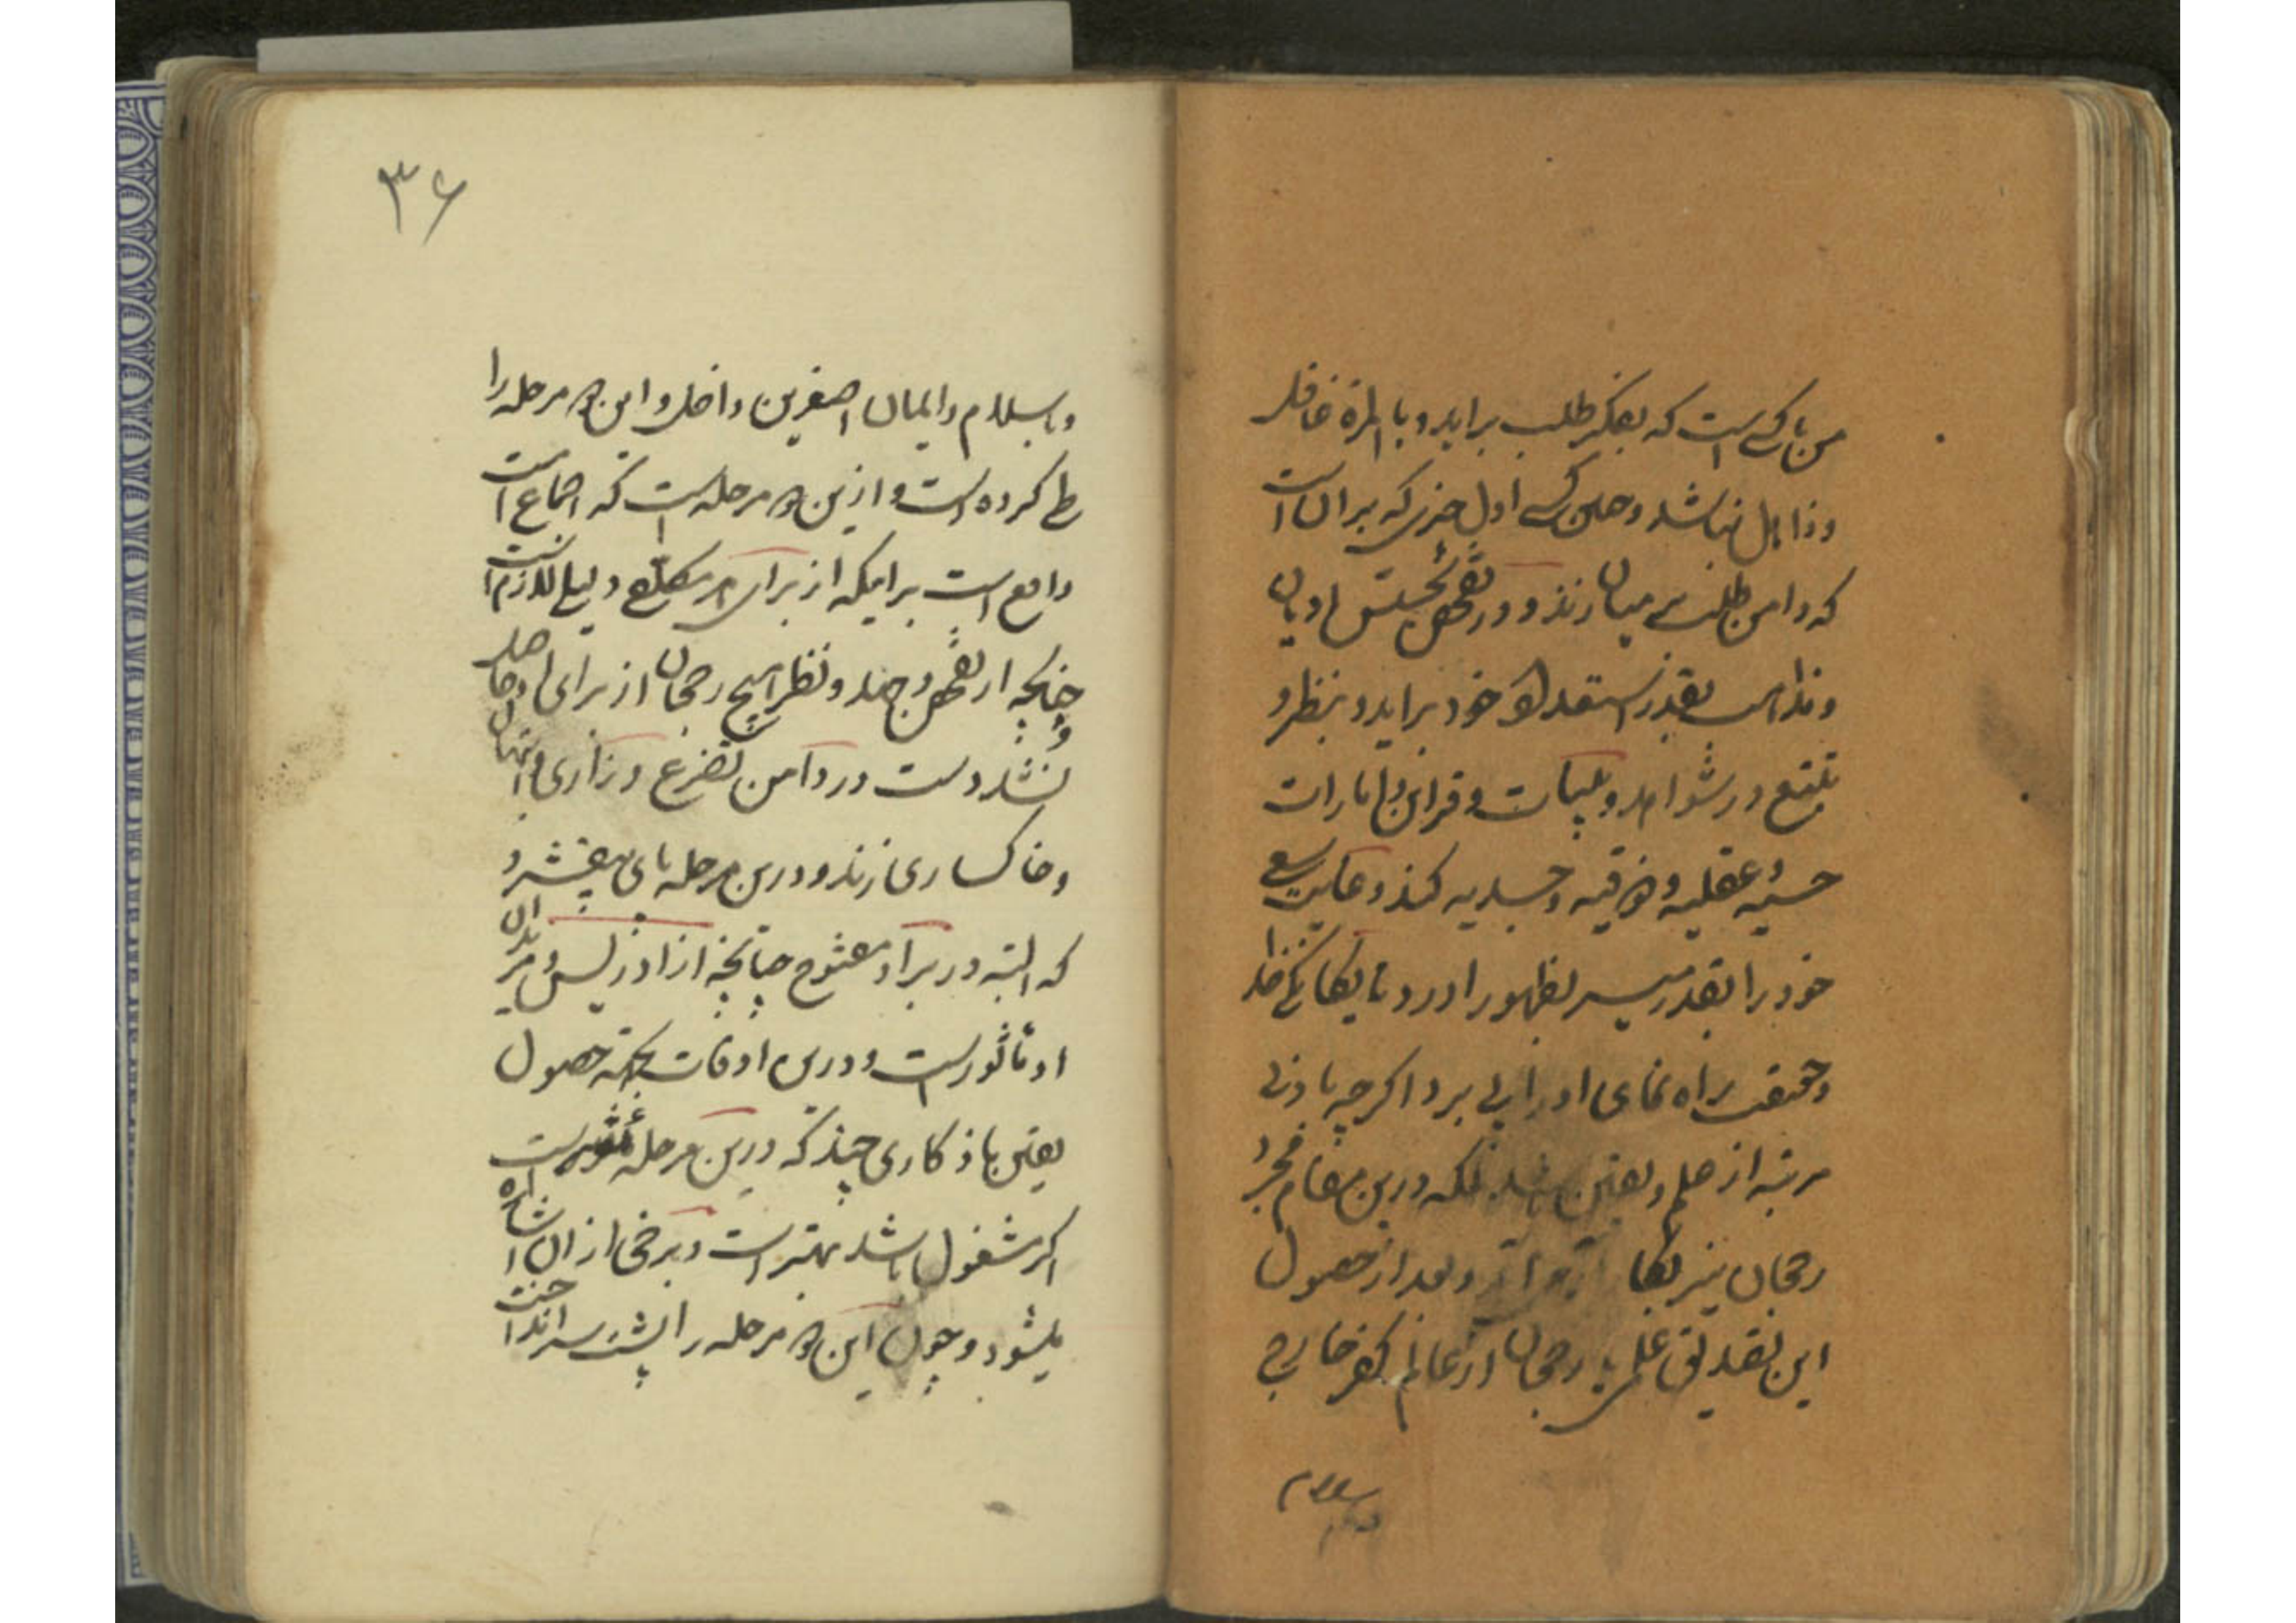 من با کسی است که بفکر طلب براید و بالمرة غافل
و ذاهل نباشد و چنین کسی اول چیزی که بر ان است
که دامن طلب بر میان زند و در تفحص و تجسس ادیان
و مذاهب بقدر استعداد خود براید و بنظر و
تتبع در شواهد و بینات و قراین و امارات
حسیه و عقلیه و ذوقیه و حدسیه کند و غایت سعی
خود را بقدر میسر بظهور اورد تا بیگانگی خدا
و حقیقت راه نمای او را پی برد اگرچه بادنی
مرتبه از علم و یقین باشد بلکه درین مقام مجرد
رجحان نیز و بعد از حصول
این تصدیق علمی یا رجحان از عالم کفر خارج
وباسلام
۳۶
وباسلام و ایمان اصغرین داخل و این دو مرحله را
طی کرده است و ازین دو مرحله است که اجماع است
واقع است بر اینکه از برای هر مکلفی دلیلی لازم است
و چنانچه از تفحص و جهد و نظر هیچ رجحان از برای او حاصل
نشد دست در دامن تضرع و زاری و ابتهال
و خاکساری زند و درین مرحله پای بیفشرد
که البته در بر او مفتوح چنانچه از ادریس و مریدان
او ماثور است و درین اوقات بجهة حصول
یقین باذکاری چند که درین مرحله مؤثر است
اگر مشغول باشد بهتر است و برخی از ان اشاره
میشود و چون این دو مرحله را پشت سر انداخت